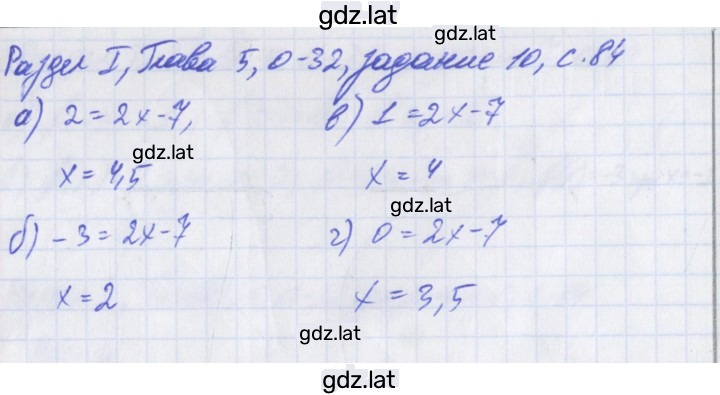 gdz.lat
Раздел I, Глава 5, О-32, задание 10, с. 84
а) 2 = 2x - 7,
в) 1 = 2x - 7
gdz.lat
x = 4,5
x = 4
gdz.lat
б) - 3 = 2x - 7
г) 0 = 2x - 7
x = 2
x = 3,5
gdz.lat
gdz.lat